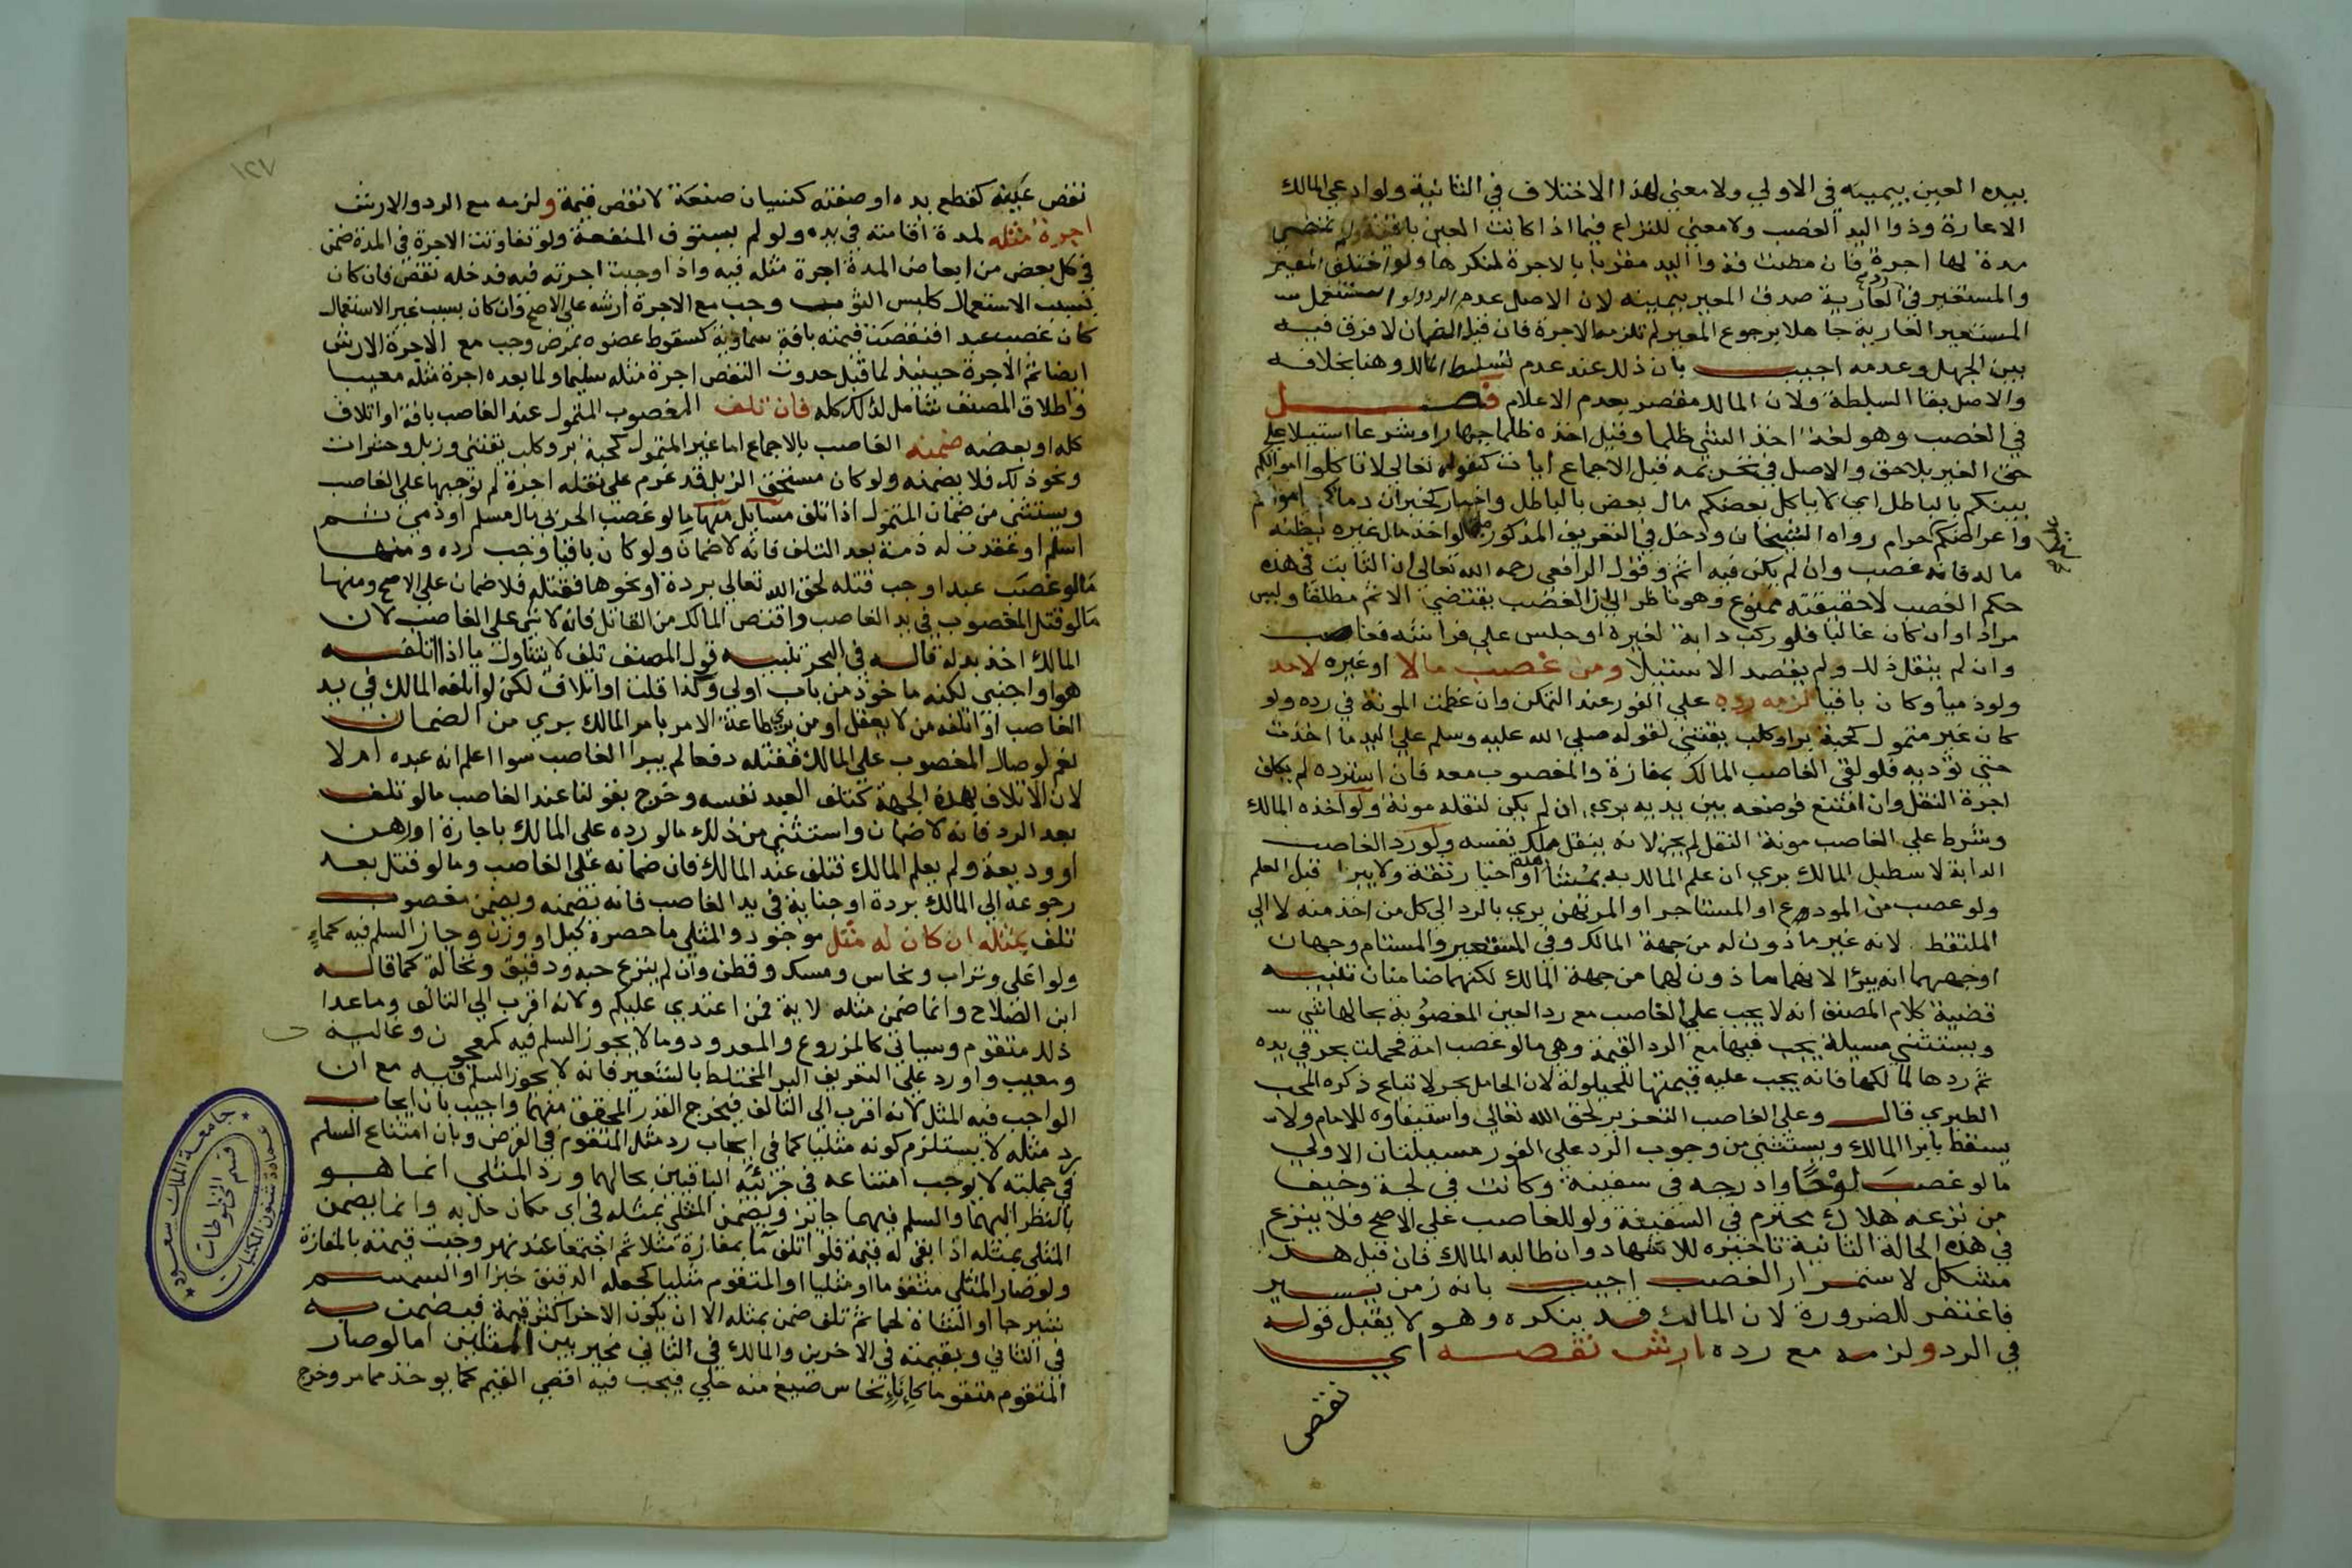 بيده العين بيمينه في الاولي ولا معني لهذا الاختلاف في الثانية ولو ادعي المالك
الاعارة وذوا اليد الغصب ولا معني للنزاع فيما اذا كانت العين باقية ولم تمضي
مدة لها اجرة فان مضت فذوا اليد مقر بالاجرة لمنكرها ولو اختلف المعير
والمستعير في رد العارية صدق المعير بيمينه لان الاصل عدم الرد ولو استعمل
المستعير العارية جاهلا برجوع المعير لم تلزمه الاجرة فان قيل الضمان لا فرق فيه
بين الجهل وعدمه اجيب بان ذلك عند عدم تسليط المالك وهنا بخلافه
والاصل بقا السلطة ولان المالك مقصر بعدم الاعلام فصل
في الغصب وهو لغة اخذ الشي ظلما وقيل اخذه ظلما جهارا وشرعا استيلا علي
حق الغير بلا حق والاصل في تحريمه قبل الاجماع ايات كقوله تعالي لا تاكلوا اموالكم
بينكم بالباطل اي لا ياكل بعضكم مال بعض بالباطل واخبار كخبر ان دماكم واموالكم
واعراضكم حرام رواه الشيخان ودخل في التعريف المذكور ما لو اخذ مال غيره يظنه
ماله فانه غصب وان لم يكن فيه اثم وقول الرافعي رحمه الله تعالي ان الثابت في هذه
حكم الغصب لا حقيقته ممنوع وهو ناظر الي ان الغصب يقتضي الاثم مطلقا وليس
مرادا وان كان غالبا فلو ركب دابة لغيره او جلس علي فراشه فغاصب
وان لم ينقل ذلك ولم يقصد الاستيلا ومن غصب مالا او غيره لاحد
ولو ذميا وكان باقيا لزمه رده علي الفور عند التمكن وان عظمت المونة في رده ولو
كان غير متمول كحبة بر او كلب يقتني لقوله صلي الله عليه وسلم علي اليد ما اخذت
حتي تؤديه فلو لقي الغاصب المالك بمفازة والمغصوب معه فان استرده لم يكلف
اجرة النقل وان امتنع فوضعه بين يديه بري ان لم يكن لنقله مونة ولو اخذه المالك
وشرط علي الغاصب مونة النقل لم يجز لانه ينقل ملك نفسه ولو رد الغاصب
الدابة لاسطبل المالك بري ان علم المالك به بمشاهدة او اخبار ثقة ولا يبرا قبل العلم
ولو غصب من المودع او المستاجر او المرتهن بري بالرد الي كل من اخذ منه لا الي
الملتقط لانه غير ماذون له من جهة المالك وفي المستعير والمستام وجهان
اوجههما انه يبرا لانهما ماذون لهما من جهة المالك لكنهما ضامنان تنبيه
قضية كلام المصنف انه لا يجب علي الغاصب مع رد العين المغصوبة بحالها شي
ويستثني مسيلة يجب فيها مع الرد القيمة وهي ما لو غصب امة فحملت بحر في يده
ثم ردها لمالكها فانه يجب عليه قيمتها للحيلولة لان الحامل بحر لا تباع ذكره المحب
الطبري قال وعلي الغاصب التعزير لحق الله تعالي واستيفاوه للامام ولا
يسقط بابرا المالك ويستثني من وجوب الرد علي الفور مسيلتان الاولي
ما لو غصب لوحا وادرجه في سفينة وكانت في لجة وخيف
من نزعه هلاك محترم في السفينة ولو للغاصب علي الاصح فلا ينزع
في هذه الحالة الثانية تاخيره للاشهاد وان طالبه المالك فان قيل هذا
مشكل لاستمرار الغصب اجيب بانه زمن يسير
فاغتفر للضرورة لان المالك قد ينكره وهو لا يقبل قوله
في الرد ولزمه مع رده ارش نقصه اي
نقص
١٢٧
نقص عينه كقطع يده او صفته كنسيان صنعة لا نقص قيمة ولزمه مع الرد والارش
اجرة مثله لمدة اقامته في يده ولو لم يستوف المنفعة ولو تفاوتت الاجرة في المدة ضمن
في كل بعض من ابعاض المدة اجرة مثله فيه واذا وجبت اجرته فيه فدخله نقص فان كان
بسبب الاستعمال كلبس الثوب وجب مع الاجرة ارشه علي الاصح وان كان بسبب غير الاستعمال
كان غصب عبدا فنقصت قيمته بافة سماوية كسقوط عضوه بمرض وجب مع الاجرة الارش
ايضا ثم الاجرة حينيذ لما قبل حدوث النقص اجرة مثله سليما ولما بعده اجرة مثله معيبا
واطلاق المصنف شامل لذلك كله فان تلف المغصوب المتمول عند الغاصب بافة او اتلاف
كله او بعضه ضمنه الغاصب بالاجماع اما غير المتمول كحبة بر وكلب يقتني وزبل وحشرات
ونحو ذلك فلا يضمنه ولو كان مستحق الزبل قد غرم علي نقله اجرة لم توجبها علي الغاصب
ويستثني من ضمان المتمول اذا تلف مسايل منها ما لو غصب الحربي مال مسلم او ذمي ثم
اسلم او عقدت له ذمة بعد التلف فانه لا ضمان ولو كان باقيا وجب رده ومنها
ما لو غصب عبدا وجب قتله لحق الله تعالي بردة او نحوها فقتله فلا ضمان علي الاصح ومنها
ما لو قتل المغصوب في يد الغاصب واقتص المالك من القاتل فانه لا شي علي الغاصب لان
المالك اخذ بدله قاله في البحر تنبيه قول المصنف تلف لا يتناول ما اذا اتلفه
هو او اجنبي لكنه ماخوذ من باب اولي وكذا قلت او اتلاف لكن لو اتلفه المالك في يد
الغاصب او اتلفه من لا يعقل او من يري طاعة الامر بامر المالك بري من الضمان
نعم لو صال المغصوب علي المالك فقتله دفعا لم يبرا الغاصب سوا اعلم انه عبده ام لا
لان الاتلاف بهذه الجهة كتلف العبد نفسه وخرج بقولنا عند الغاصب ما لو تلف
بعد الرد فانه لا ضمان واستثني من ذلك ما لو رده علي المالك باجارة او رهن
او وديعة ولم يعلم المالك فتلف عند المالك فان ضمانه علي الغاصب وما لو قتل بعد
رجوعه الي المالك بردة او جناية في يد الغاصب فانه يضمنه ويضمن مغصوب
تلف بمثله ان كان له مثل موجود والمثلي ما حصره كيل او وزن وجاز السلم فيه كماء
ولو اغلي وتراب ونحاس ومسك وقطن وان لم ينزع حبه ودقيق ونخالة كما قاله
ابن الصلاح وانما ضمن مثله لاية فمن اعتدي عليكم ولانه اقرب الي التالف وما عدا
ذلك متقوم وسياتي كالمزروع والمعدود وما لا يجوز السلم فيه كمعجون وغالية
ومعيب واورد علي التعريف البر المختلط بالشعير فانه لا يجوز السلم فيه مع ان
الواجب فيه المثل لانه اقرب الي التالف فيخرج القدر المحقق منهما واجيب بان ايجاب
رد مثله لا يستلزم كونه مثليا كما في ايجاب رد مثل المتقوم في القرض وبان امتناع السلم
في جملته لا يوجب امتناعه في جزئيه الباقيين بحالهما ورد المثلي انما هو
بالنظر اليهما والسلم فيهما جايز ويضمن المثلي بمثله في اي مكان حل به وانما يضمن
المثلي بمثله اذا بقي له قيمة فلو اتلف ما بمفازة مثلا ثم اجتمعا عند نهر وجبت قيمته بالمفازة
ولو صار المثلي متقوما او مثليا او المتقوم مثليا كجعل الدقيق خبزا او السمسم
شيرجا او الشاة لحما ثم تلف ضمن بمثله الا ان يكون الاخر اكثر قيمة فيضمن به
في الثاني وبقيمته في الاخرين والمالك في الثاني مخير بين المثلين اما لو صار
المتقوم متقوما كاناء نحاس صيغ منه حلي فيجب فيه اقصي القيم كما يوخذ مما مر وخرج
جامعة الملك سعود
عمادة شئون المكتبات
قسم المخطوطات